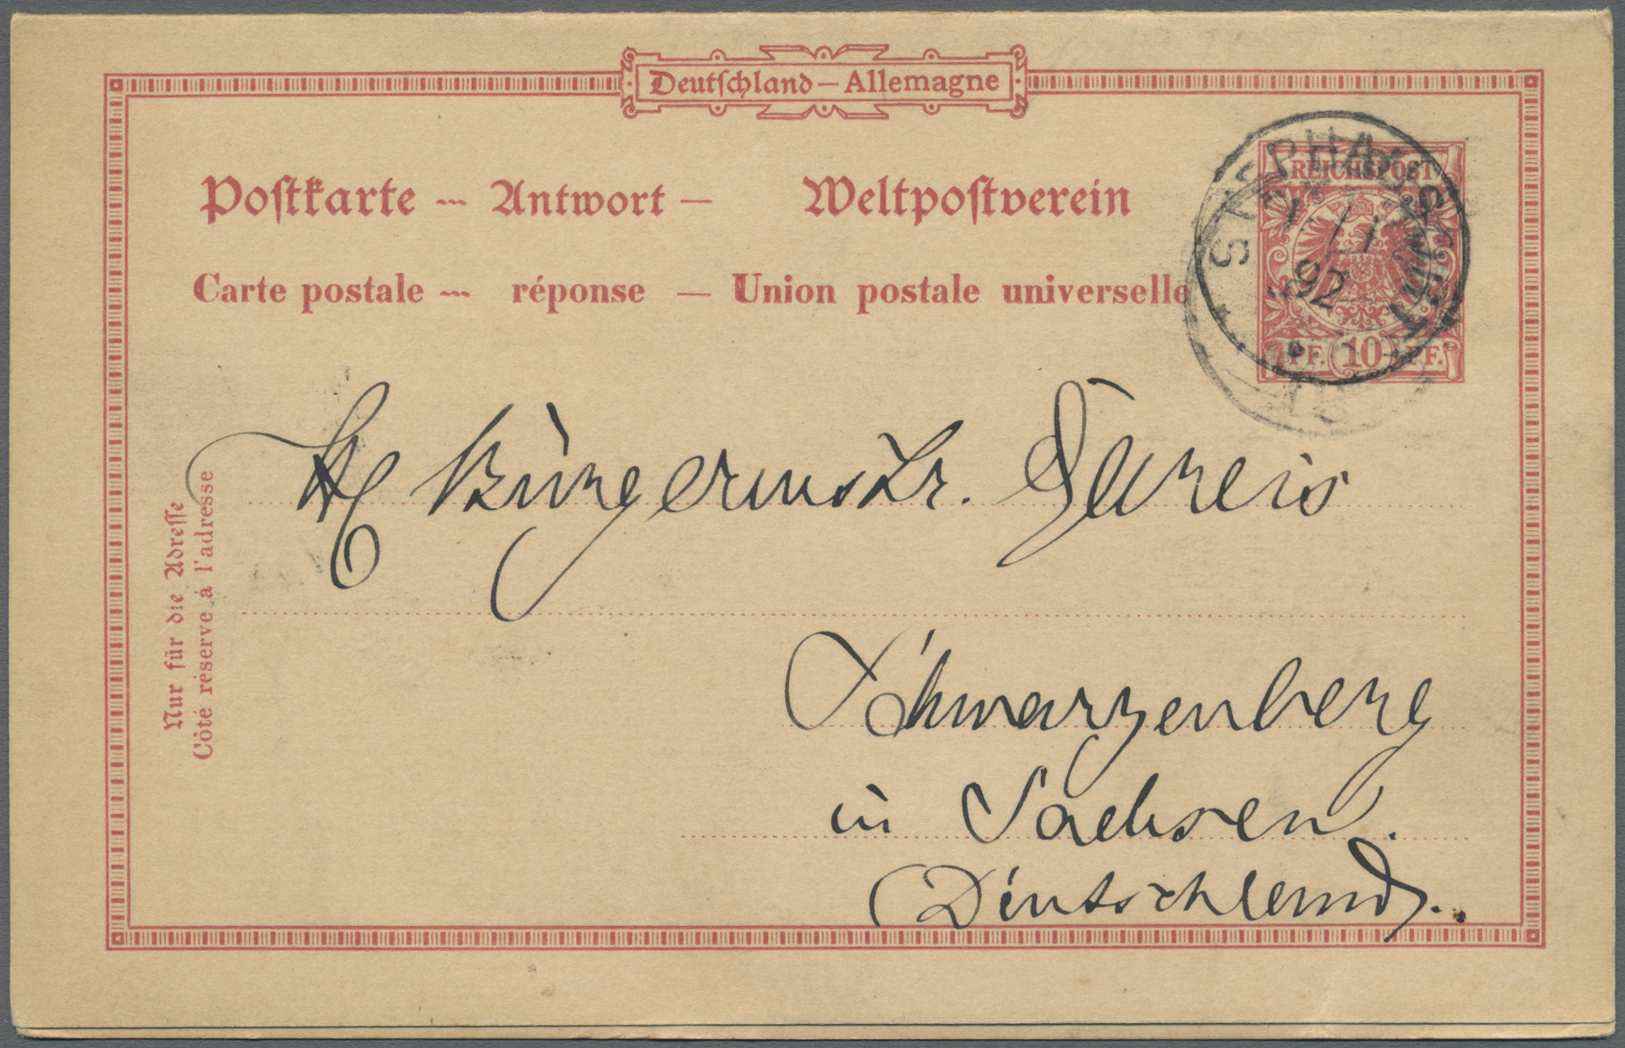 Deutſchland – Allemagne
Poſtkarte --- Antwort — Weltpoſtverein
Carte postale --- réponse — Union postale universelle
REICHSPOST
STEPHANSORT
11
92
PF. 10 PF.
Nur für die Adreſſe
Côté réservé à l'adresse
Bürgermstr. Gareis
Schwarzenberg
in Sachsen.
(Deutschland).